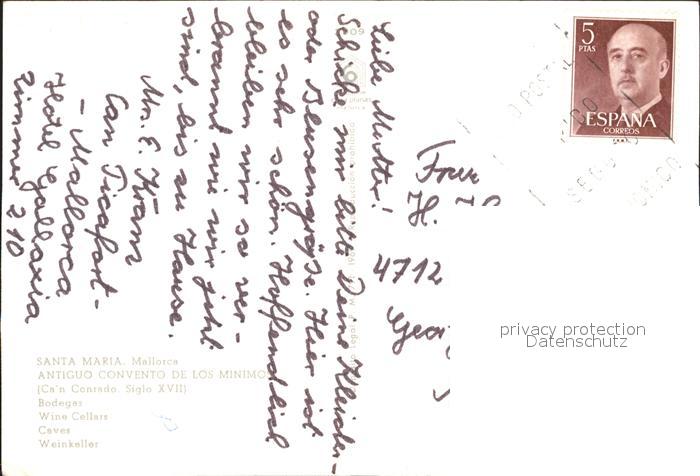 Liebe Mutter!
Schicke mir bitte Deine Kleider-
oder Blusengröße. Hier ist
es sehr schön. Hoffentlich
bleiben wir so ver-
brannt wie wir jetzt
sind, bis zu Hause.
Mr. E. Kranz
Can Picafort-
- Mallorca
Hotel Gallaxia
Zimmer 210
5
PTAS
ESPAÑA
CORREOS
H.
4712
privacy protection
Datenschutz
SANTA MARIA. Mallorca
ANTIGUO CONVENTO DE LOS MINIMO
(Ca'n Conrado. Siglo XVII)
Bodegas
Wine Cellars
Caves
Weinkeller